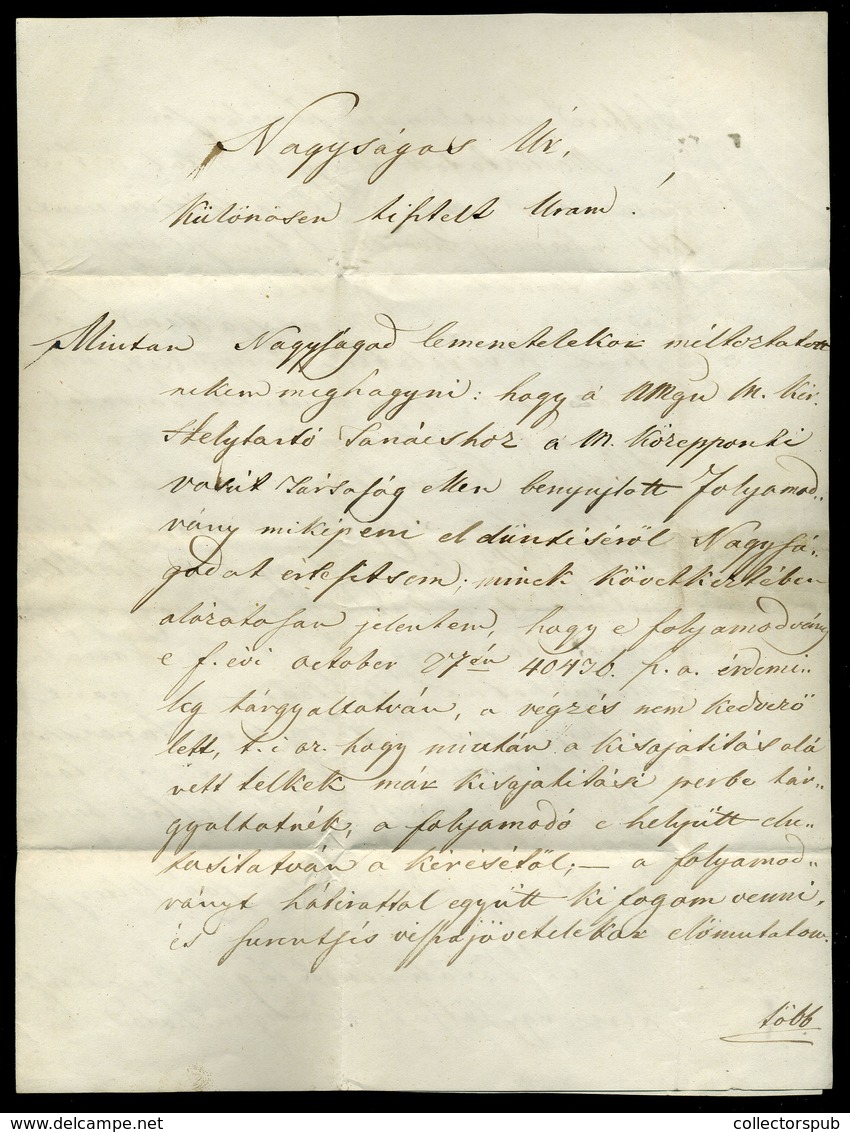 Nagyságos Úr,
Különösen tisztelt Uram!
Miután Nagyságod lemenetelekor méltoztatott
nekem meghagyni: hogy a NMgu M. Kir.
Helytartó Tanácshoz a M. Közepponti
vasut Társaság ellen benyujtott folyamod„
vány miképeni eldüntéséröl Nagysá„
godat értesitsem; minek következtében
alázatosan jelentem, hogy e folyamodvány
e f. évi october 27én 40436. p. a. érdemi„
leg tárgyaltatván, a végzés nem kedvezö
lett, t. i az. hogy miután a kisajátitás alá
vett telkek már kisajátitási perbe tár„
gyaltatnék, a folyamodó e helyütt elu„
tasitatván a kérésétöl; — a folyamod„
ványt hátirattal együtt ki fogom venni,
és visszajövetelekor elömutatom.
több
collectorspub